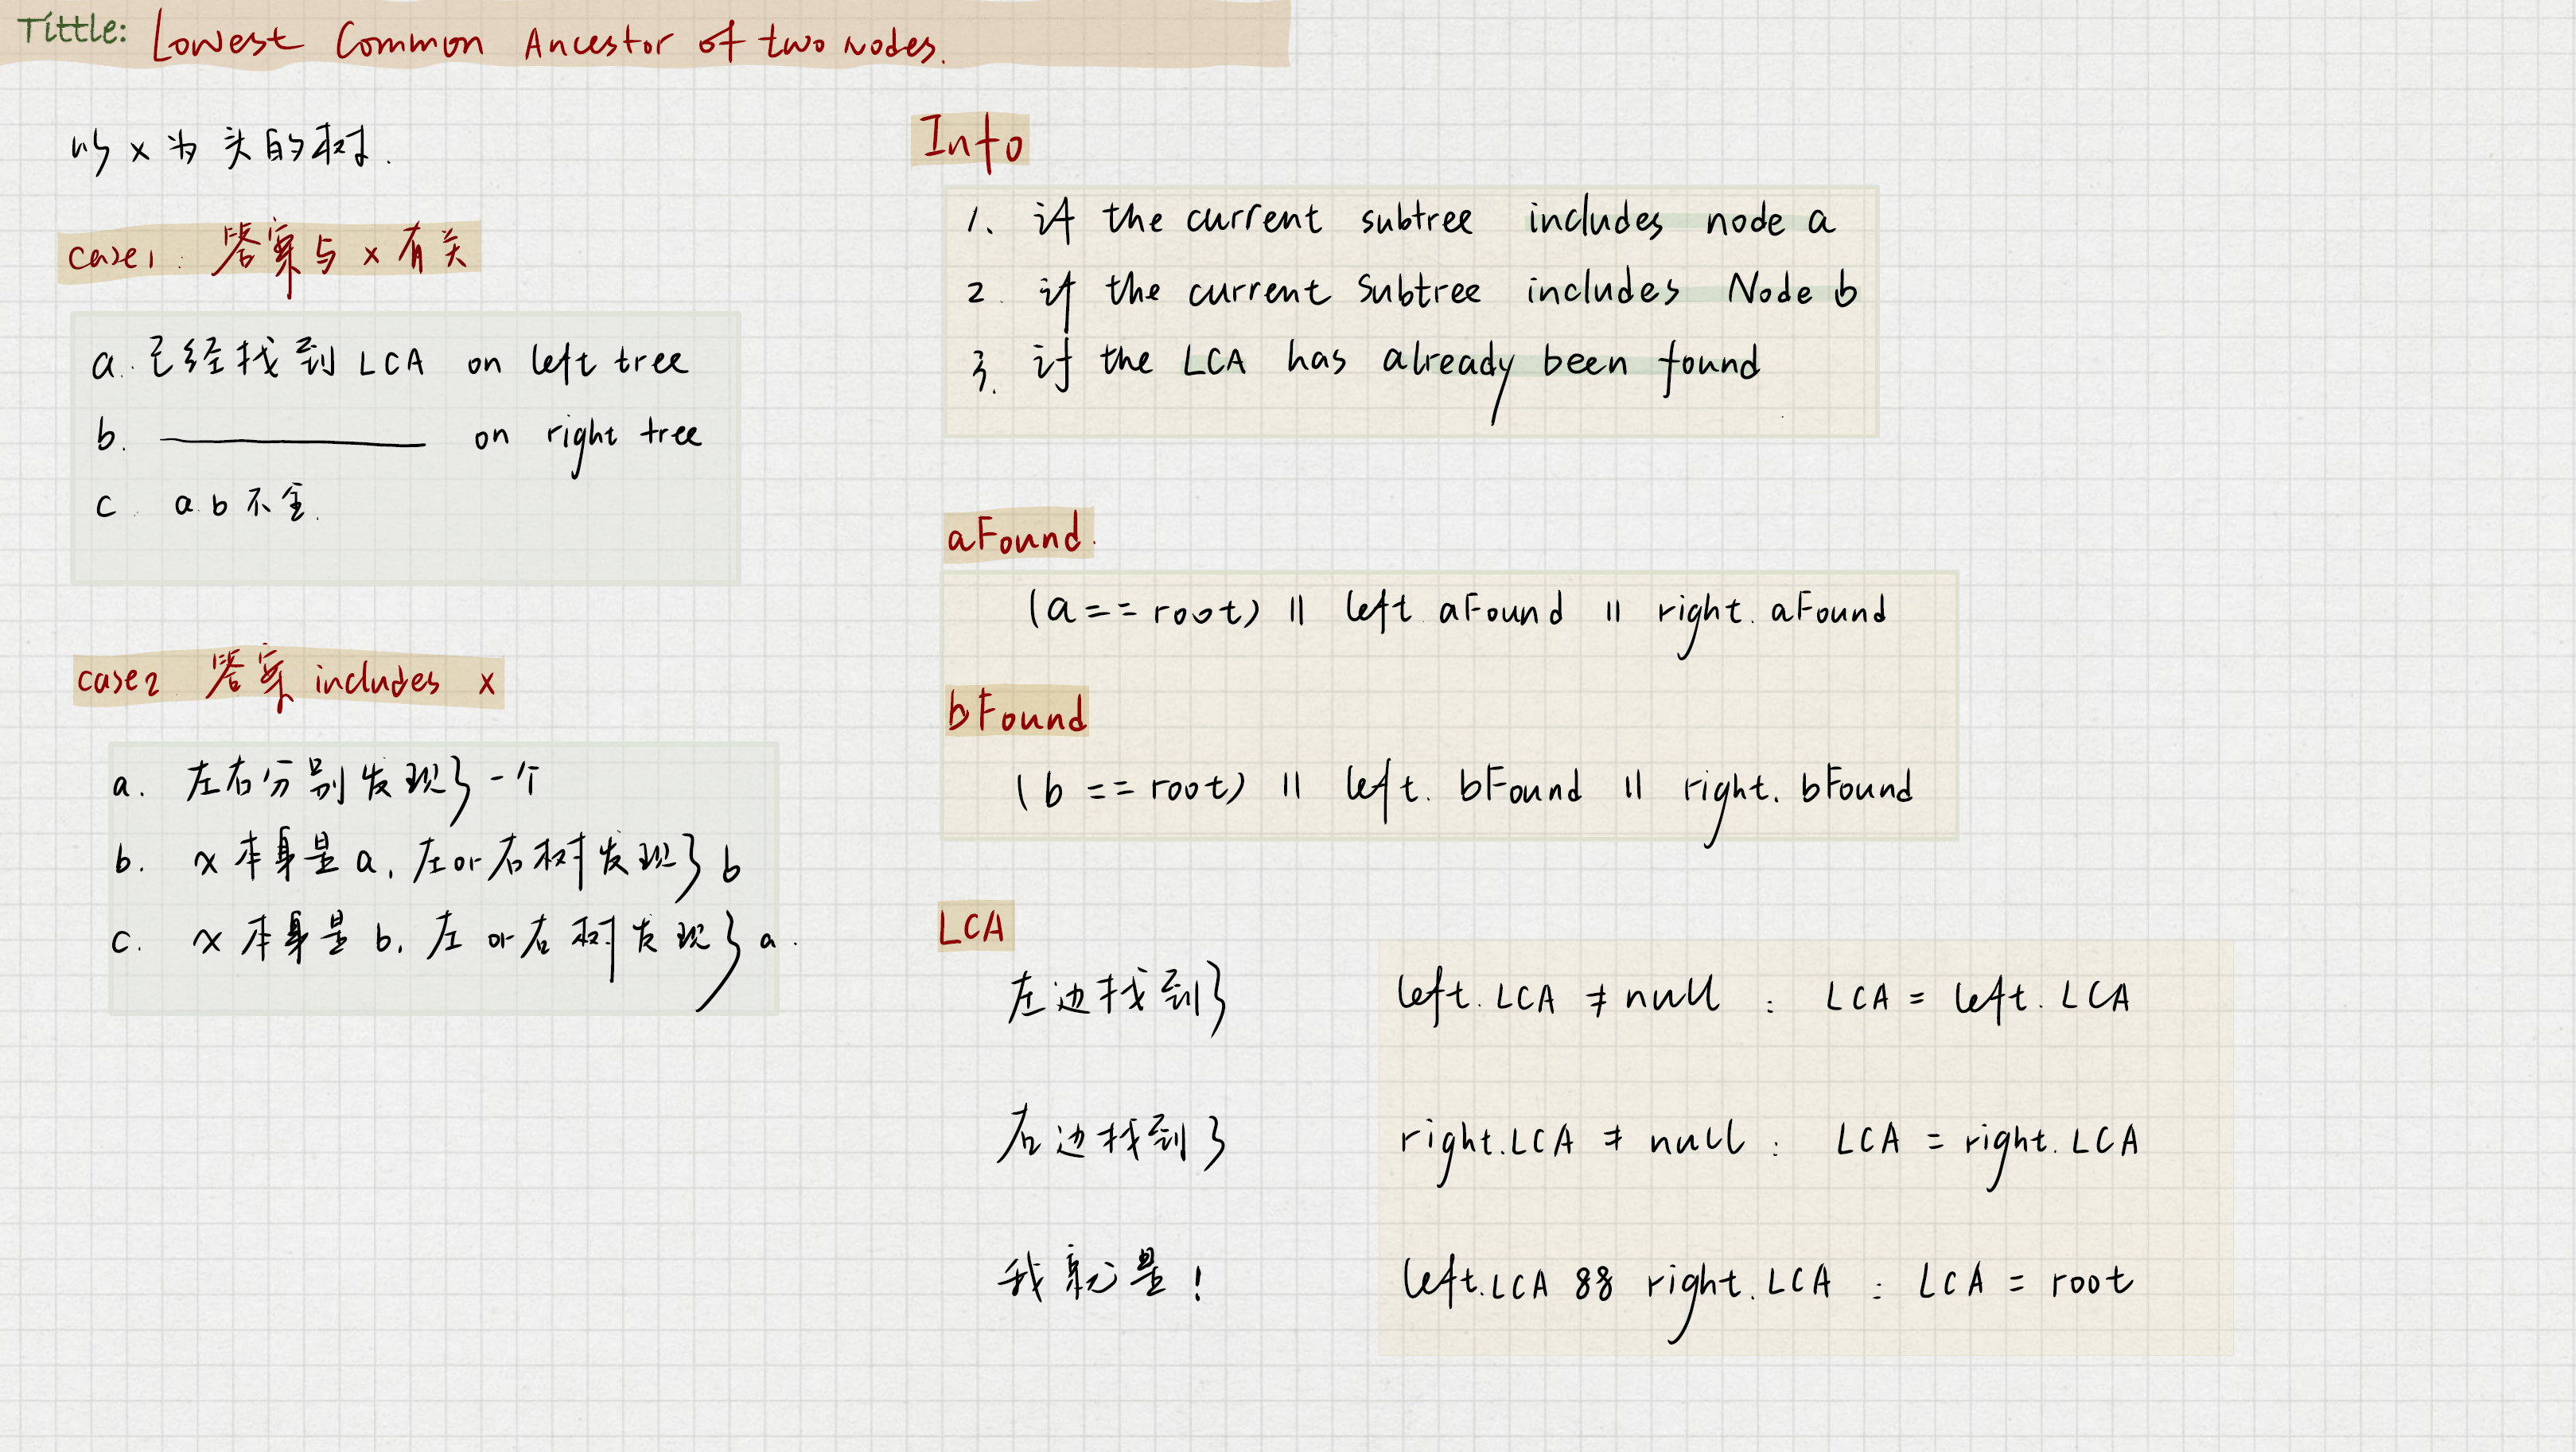 Tittle: Lowest Common Ancestor of two nodes.
以 x 为 头的树.
case1: 答案与 x 有关
a. 已经找到 LCA on left tree
b. ———— on right tree
c. a.b 不全.
case2 答案 includes x
a. 左右分别发现了一个
b. x 本身是 a, 左or右树发现了 b
c. x 本身是 b, 左 or 右树发现了 a.
Info
1. if the current subtree includes node a
2. if the current Subtree includes Node b
3. if the LCA has already been found
aFound.
(a == root) || left aFound || right. aFound
bFound
(b == root) || left. bFound || right. bFound
LCA
左边找到了 left. LCA ≠ null : LCA = left. LCA
右边找到了 right.LCA ≠ null : LCA = right. LCA
我就是! left.LCA && right. LCA : LCA = root